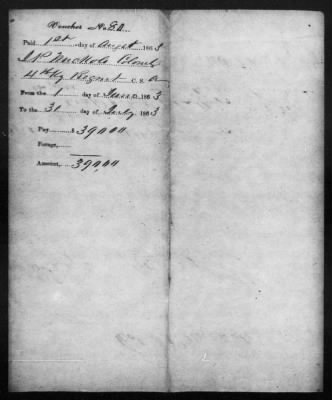 Voucher No
Paid 1st day of August 1863
J. P. Nuckols Colonel
4th Ky Regmt C. S. A
From the 1 day of June 1863
To the 31 day of July 1863
Pay, $ 390,00
Forage,
Amount, 390,00